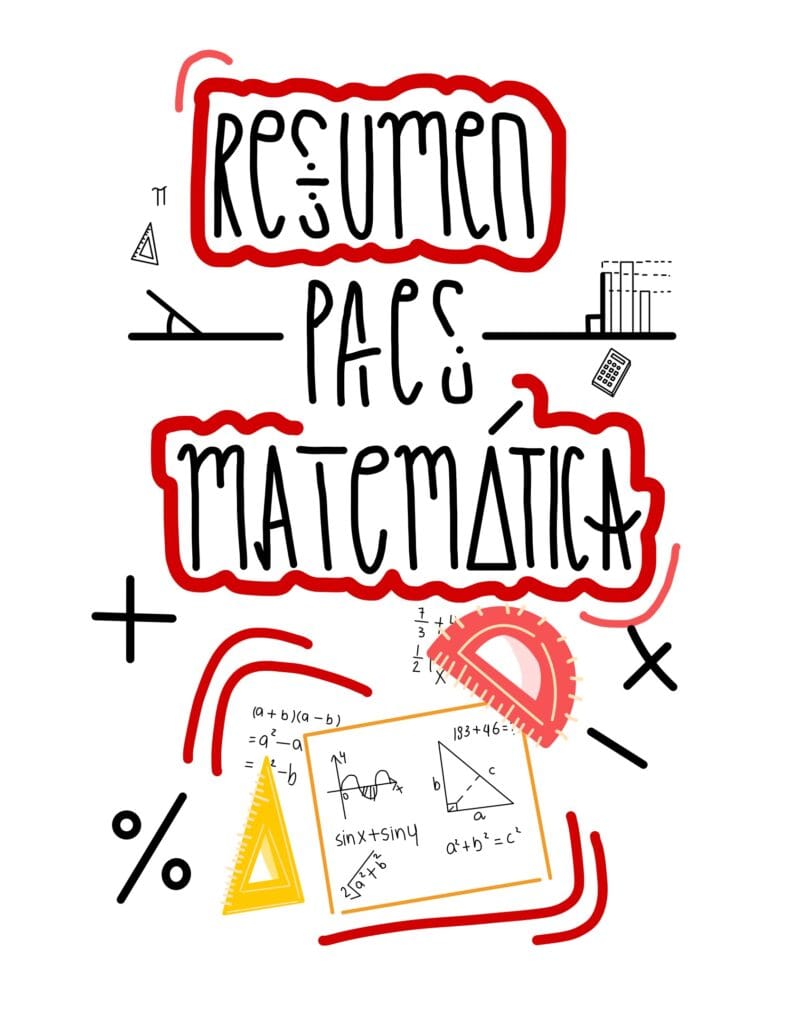 RESUMEN
π
PAES
MATEMÁTICA
+
7/3 +
1/2
x
x
-
(a+b)(a-b)
=a²-a
= ²-b
183+46=?
y
0
x
b
c
a
sinx+siny
a²+b²=c²
2√a²+b²
%